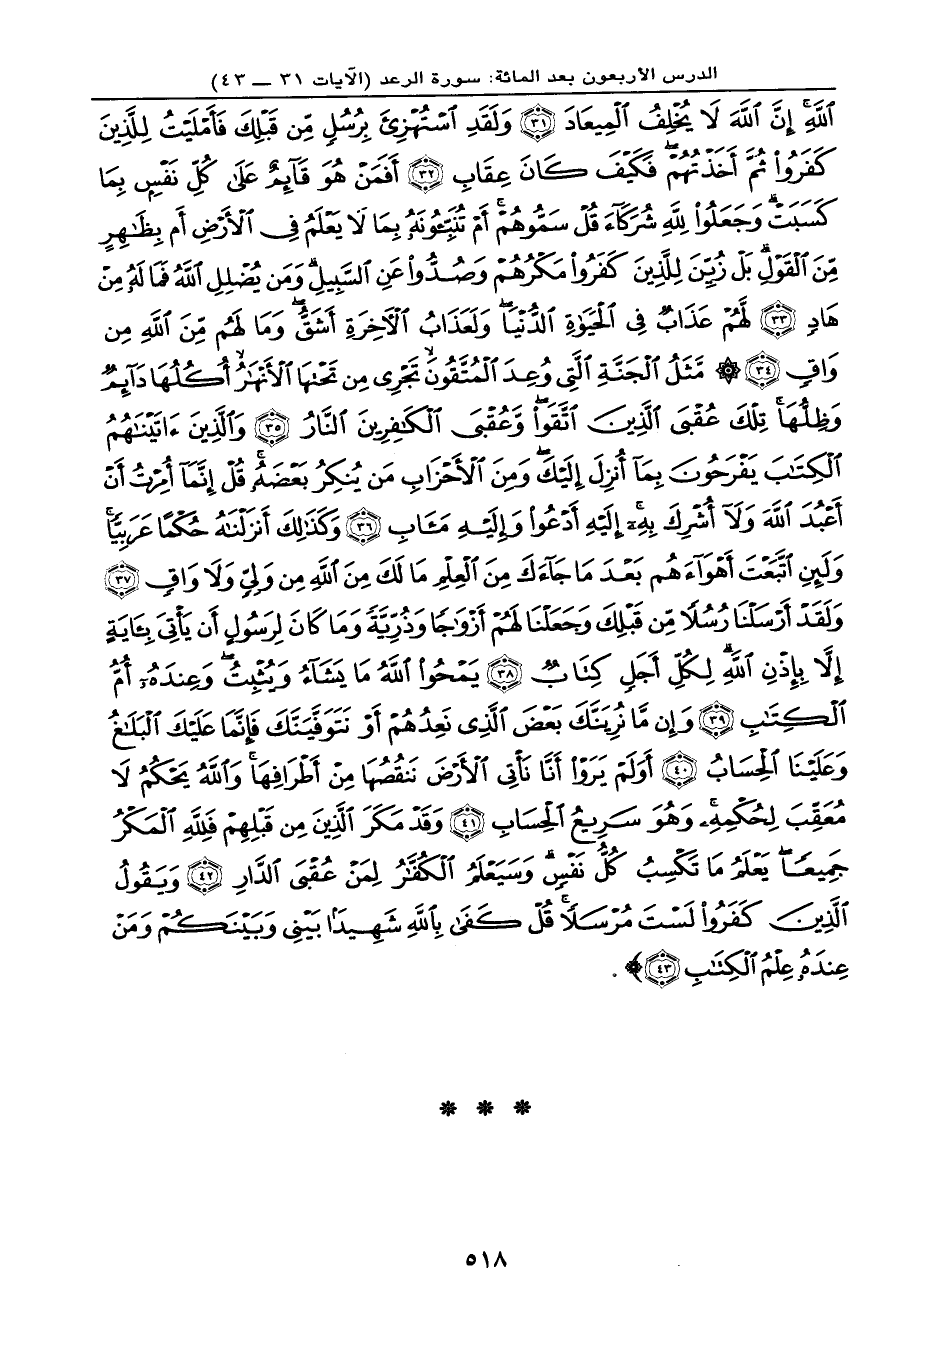 الدرس الأربعون بعد المائة: سورة الرعد (الآيات ٣١ — ٤٣)
ٱللَّهِۚ إِنَّ ٱللَّهَ لَا يُخْلِفُ ٱلْمِيعَادَ ﴿٣١﴾ وَلَقَدِ ٱسْتُهْزِئَ بِرُسُلٍ مِّن قَبْلِكَ فَأَمْلَيْتُ لِلَّذِينَ
كَفَرُوا۟ ثُمَّ أَخَذْتُهُمْۖ فَكَيْفَ كَانَ عِقَابِ ﴿٣٢﴾ أَفَمَنْ هُوَ قَآئِمٌ عَلَىٰ كُلِّ نَفْسٍۭ بِمَا
كَسَبَتْۗ وَجَعَلُوا۟ لِلَّهِ شُرَكَآءَ قُلْ سَمُّوهُمْۚ أَمْ تُنَبِّـُٔونَهُۥ بِمَا لَا يَعْلَمُ فِى ٱلْأَرْضِ أَم بِظَـٰهِرٍ
مِّنَ ٱلْقَوْلِۗ بَلْ زُيِّنَ لِلَّذِينَ كَفَرُوا۟ مَكْرُهُمْ وَصُدُّوا۟ عَنِ ٱلسَّبِيلِۗ وَمَن يُضْلِلِ ٱللَّهُ فَمَا لَهُۥ مِنْ
هَادٍ ﴿٣٣﴾ لَّهُمْ عَذَابٌ فِى ٱلْحَيَوٰةِ ٱلدُّنْيَاۖ وَلَعَذَابُ ٱلْـَٔاخِرَةِ أَشَقُّۖ وَمَا لَهُم مِّنَ ٱللَّهِ مِن
وَاقٍ ﴿٣٤﴾ ۞ مَّثَلُ ٱلْجَنَّةِ ٱلَّتِى وُعِدَ ٱلْمُتَّقُونَۖ تَجْرِى مِن تَحْتِهَا ٱلْأَنْهَـٰرُۖ أُكُلُهَا دَآئِمٌ
وَظِلُّهَاۚ تِلْكَ عُقْبَى ٱلَّذِينَ ٱتَّقَوا۟ۖ وَّعُقْبَى ٱلْكَـٰفِرِينَ ٱلنَّارُ ﴿٣٥﴾ وَٱلَّذِينَ ءَاتَيْنَـٰهُمُ
ٱلْكِتَـٰبَ يَفْرَحُونَ بِمَآ أُنزِلَ إِلَيْكَۖ وَمِنَ ٱلْأَحْزَابِ مَن يُنكِرُ بَعْضَهُۥۚ قُلْ إِنَّمَآ أُمِرْتُ أَنْ
أَعْبُدَ ٱللَّهَ وَلَآ أُشْرِكَ بِهِۦٓۚ إِلَيْهِ أَدْعُوا۟ وَإِلَيْهِ مَـَٔابِ ﴿٣٦﴾ وَكَذَٰلِكَ أَنزَلْنَـٰهُ حُكْمًا عَرَبِيًّاۚ
وَلَئِنِ ٱتَّبَعْتَ أَهْوَآءَهُم بَعْدَ مَا جَآءَكَ مِنَ ٱلْعِلْمِ مَا لَكَ مِنَ ٱللَّهِ مِن وَلِىٍّ وَلَا وَاقٍ ﴿٣٧﴾
وَلَقَدْ أَرْسَلْنَا رُسُلًا مِّن قَبْلِكَ وَجَعَلْنَا لَهُمْ أَزْوَٰجًا وَذُرِّيَّةًۚ وَمَا كَانَ لِرَسُولٍ أَن يَأْتِىَ بِـَٔايَةٍ
إِلَّا بِإِذْنِ ٱللَّهِۗ لِكُلِّ أَجَلٍ كِتَابٌ ﴿٣٨﴾ يَمْحُوا۟ ٱللَّهُ مَا يَشَآءُ وَيُثْبِتُۖ وَعِندَهُۥٓ أُمُّ
ٱلْكِتَـٰبِ ﴿٣٩﴾ وَإِن مَّا نُرِيَنَّكَ بَعْضَ ٱلَّذِى نَعِدُهُمْ أَوْ نَتَوَفَّيَنَّكَ فَإِنَّمَا عَلَيْكَ ٱلْبَلَـٰغُ
وَعَلَيْنَا ٱلْحِسَابُ ﴿٤٠﴾ أَوَلَمْ يَرَوْا۟ أَنَّا نَأْتِى ٱلْأَرْضَ نَنقُصُهَا مِنْ أَطْرَافِهَاۚ وَٱللَّهُ يَحْكُمُ لَا
مُعَقِّبَ لِحُكْمِهِۦۚ وَهُوَ سَرِيعُ ٱلْحِسَابِ ﴿٤١﴾ وَقَدْ مَكَرَ ٱلَّذِينَ مِن قَبْلِهِمْ فَلِلَّهِ ٱلْمَكْرُ
جَمِيعًاۖ يَعْلَمُ مَا تَكْسِبُ كُلُّ نَفْسٍۗ وَسَيَعْلَمُ ٱلْكُفَّـٰرُ لِمَنْ عُقْبَى ٱلدَّارِ ﴿٤٢﴾ وَيَقُولُ
ٱلَّذِينَ كَفَرُوا۟ لَسْتَ مُرْسَلًاۚ قُلْ كَفَىٰ بِٱللَّهِ شَهِيدًۢا بَيْنِى وَبَيْنَكُمْ وَمَنْ
عِندَهُۥ عِلْمُ ٱلْكِتَـٰبِ ﴿٤٣﴾ ﴾ .
* * *
٥١٨